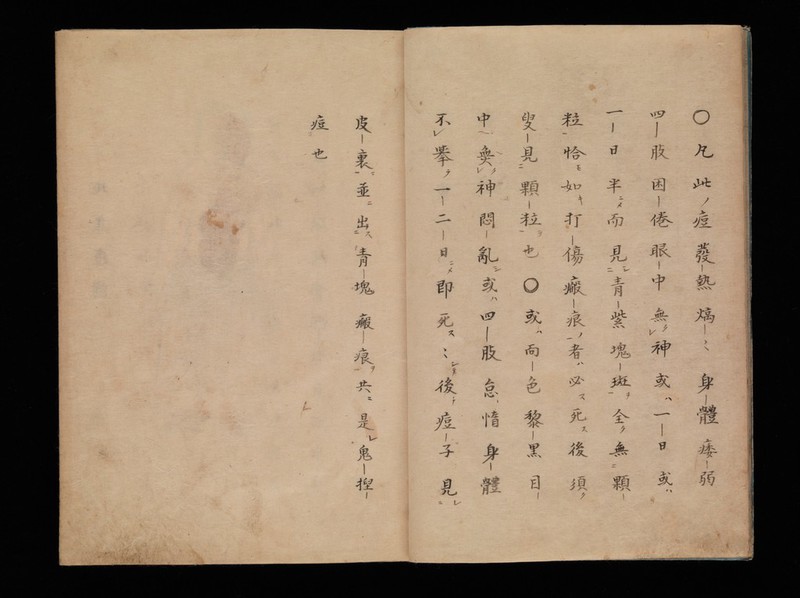 〇凡此ノ痘發熱熇〻身體痿弱
四肢困倦眼中無神或ハ一日或ハ
一日半ニメ而見青紫塊斑全ク無顆
粒恰モ如打傷瘢痕ノ者ハ必ス死ス後須ク
叟見顆粒也〇或ハ面色黎黒目
中無神悶亂シ或ハ四肢怠惰身體
不擧一二日ニメ即死ス〻後痘子見
皮裏並ニ出ス青塊瘢痕共ニ是レ鬼揑
痘也